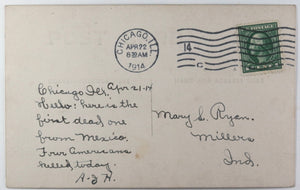 CHICAGO, ILL.
APR 22
8-30 AM
1914
14
C
Chicago Ills. Apr 21-14
Hello: here is the
first dead one
from Mexico.
Four Americans
killed today.
A.J.H.
Mary C. Ryan.
Millers
Ind.